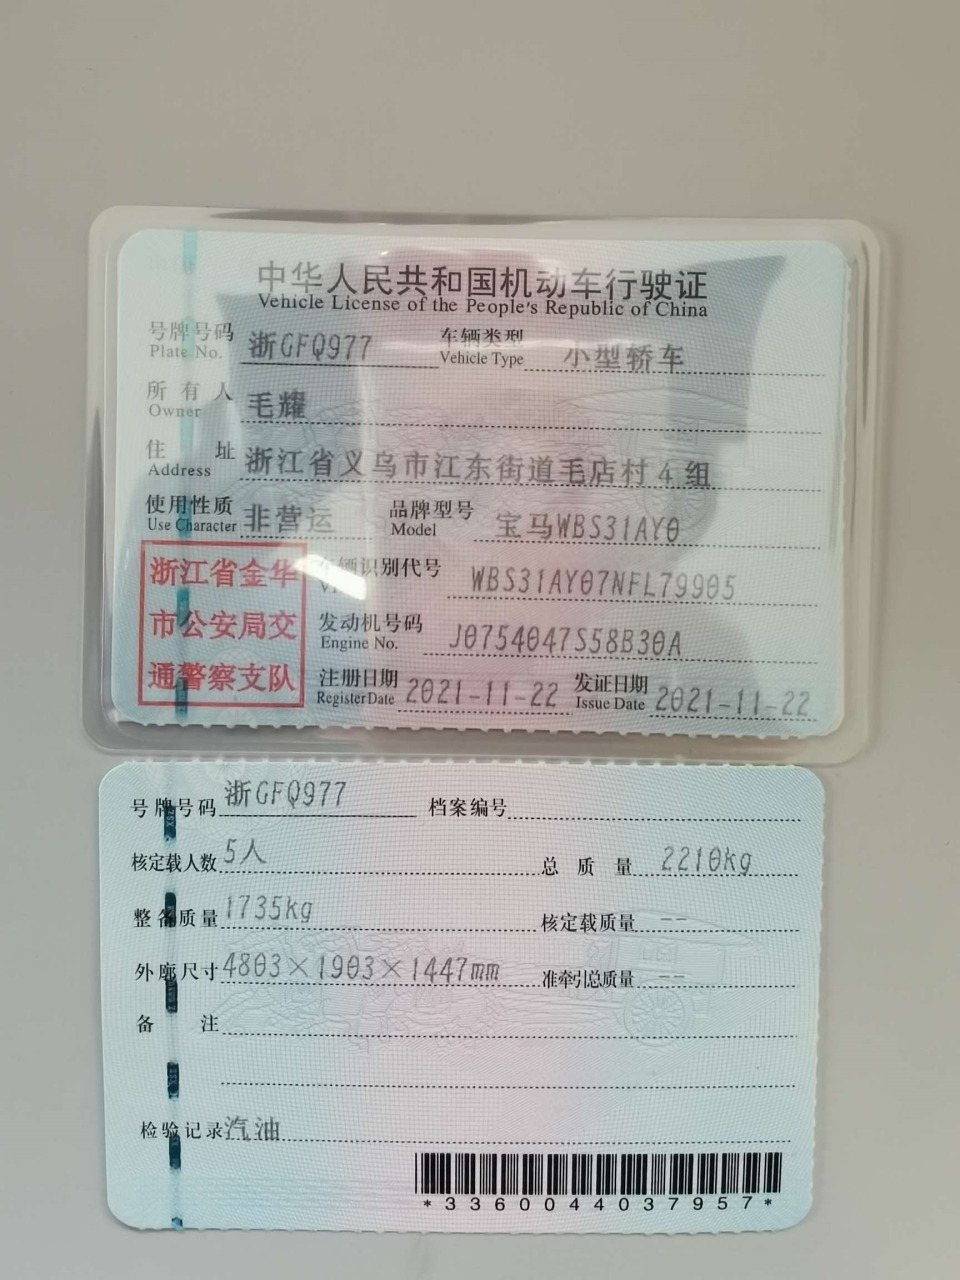 中华人民共和国机动车行驶证
Vehicle License of the People's Republic of China
号牌号码 浙GFQ977 车辆类型 小型轿车
Plate No. Vehicle Type
所有人 毛耀
Owner
住址 浙江省义乌市江东街道毛店村4组
Address
使用性质 非营运 品牌型号 宝马WBS31AY0
Use Character Model
浙江省金华
市公安局交
通警察支队
车辆识别代号 WBS31AY07NFL79905
发动机号码 J0754047S58B30A
Engine No.
注册日期 2021-11-22 发证日期 2021-11-22
Register Date Issue Date
号牌号码 浙GFQ977 档案编号
核定载人数 5人 总质量 2210kg
整备质量 1735kg 核定载质量 --
外廓尺寸 4803×1903×1447mm 准牵引总质量 --
备注
检验记录 汽油
*3360044037957*